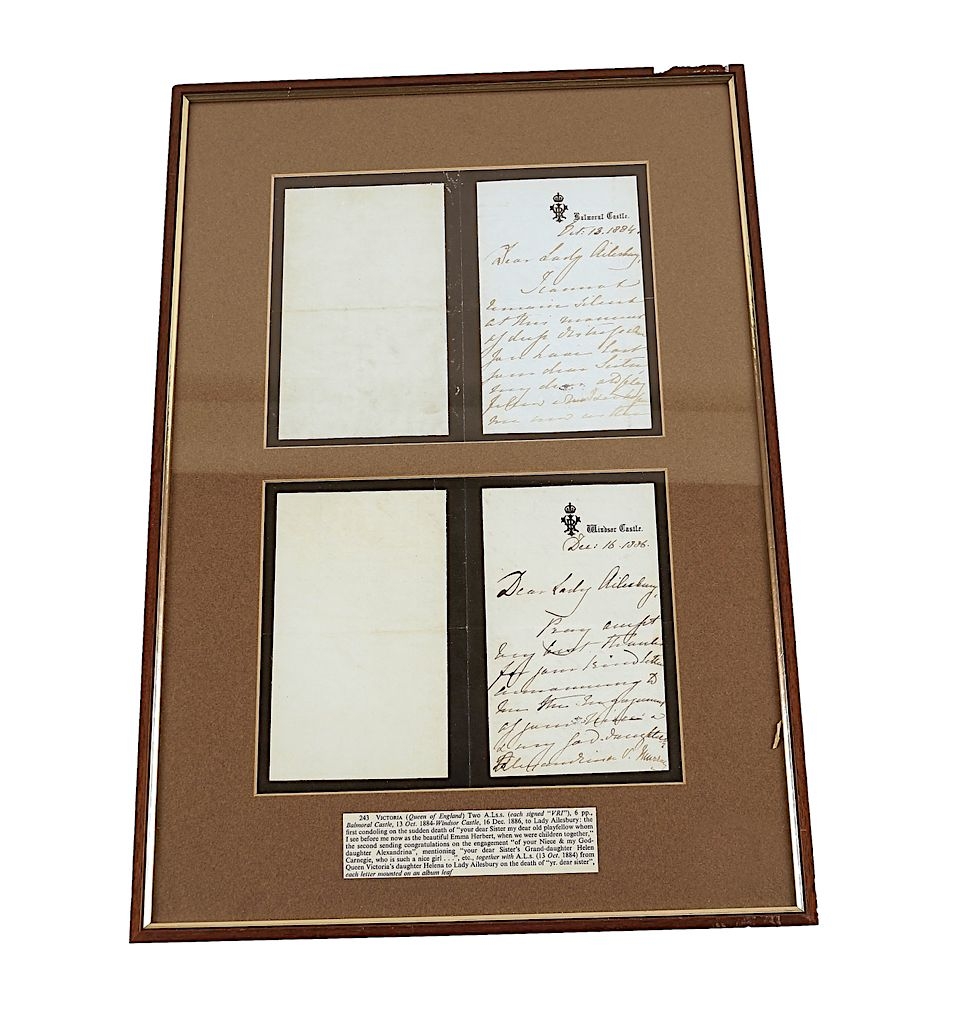 Balmoral Castle.
Oct: 13. 1884.
Dear Lady Ailesbury,
I cannot
remain silent
at this moment
of deep distress
You have lost
your dear Sister
my dear old play
fellow
me
Windsor Castle.
Dec: 16. 1886.
Dear Lady Ailesbury,
Pray accept
my best thanks
for your kind letter
announcing to
me the engagement
of your Niece
& my God-daughter
Alexandrina V. Murray
243 VICTORIA (Queen of England) Two A.Ls.s. (each signed "VRI"), 6 pp.,
Balmoral Castle, 13 Oct. 1884-Windsor Castle, 16 Dec. 1886, to Lady Ailesbury: the
first condoling on the sudden death of "your dear Sister my dear old playfellow whom
I see before me now as the beautiful Emma Herbert, when we were children together,"
the second sending congratulations on the engagement "of your Niece & my God-
daughter Alexandrina", mentioning "your dear Sister's Grand-daughter Helen
Carnegie, who is such a nice girl . . .", etc., together with A.L.s. (13 Oct. 1884) from
Queen Victoria's daughter Helena to Lady Ailesbury on the death of "yr. dear sister",
each letter mounted on an album leaf